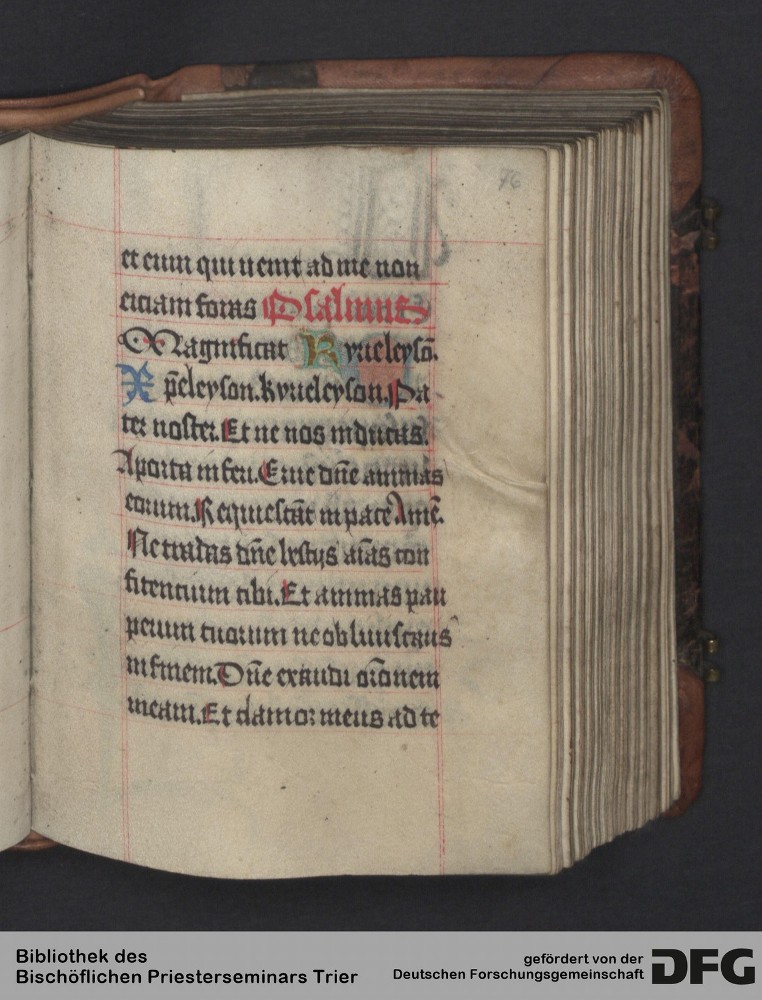 76
et eum qui uenit ad me non
eiciam foras Psalmus
Magnificat Kyrieleyso̅.
Xp̅eleyson. kyrieleyson. Pa
ter noster. Et ne nos inducas.
A porta inferi. Erue dn̅e animas
eorum. Requiesca̅t in pace Ame̅.
Ne tradas dn̅e bestijs ai̅as con
fitentium tibi. Et animas pau
perum tuorum ne obliuiscaris
in finem. Dn̅e exaudi or̅onem
meam. Et clamor meus ad te
Bibliothek des
Bischöflichen Priesterseminars Trier
gefördert von der
Deutschen Forschungsgemeinschaft
DFG